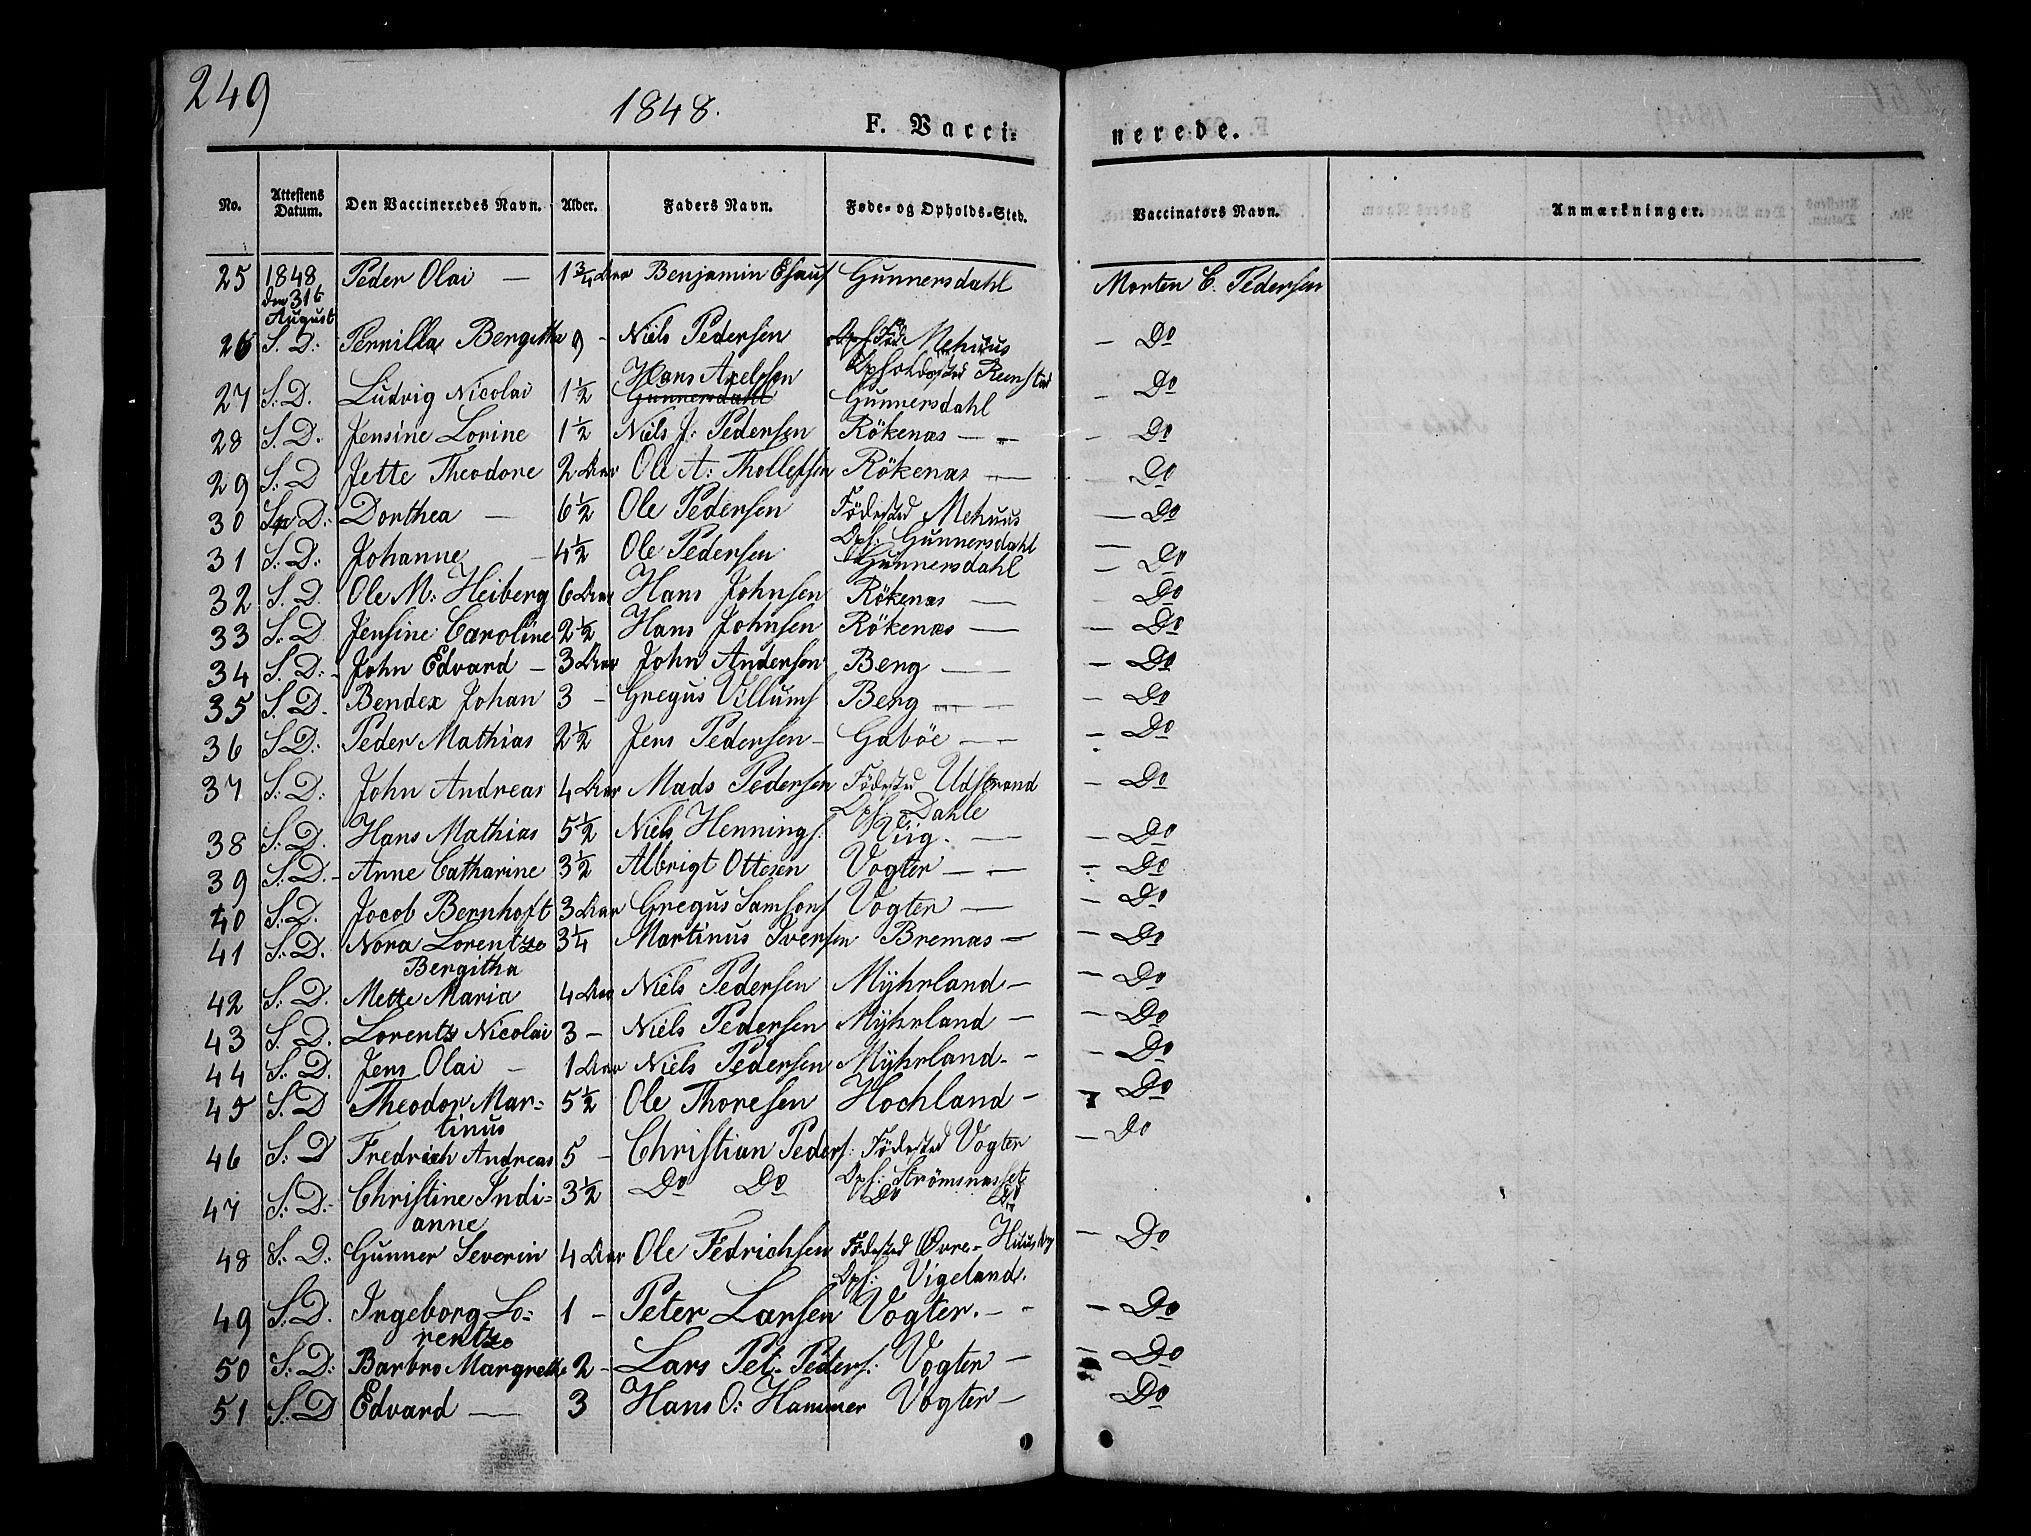 249
1848.
F. Vacci=
nerede.
No. Attestens Datum. Den Vaccineredes Navn. Alder. Faders Navn. Føde- og Opholds-Sted. Vaccinators Navn. Anmærkninger.
25 1848 Peder Olai — 1¾ Aar Benjamin Esaus Gunnersdahl Morten C. Pedersen
den 31t
August
26 S. D: Pernilla Bergitha 9 - Niels Pedersen Mehuus — Do
Opholdssted Remstad
27 S. D. Ludvig Nicolai 1½ Hans Axelssen Gunnersdahl - Do
Gunnersdahl
28 S. D. Jensine Lorine 1½ Niels J: Pedersen Rökenæs — - Do
29 S: D Jette Theodore 2 Aar Ole A: Thollefsen Rökenæs — - Do
30 S. D: Dorthea — 6½ Ole Pedersen Födested Mehuus — Do
Ops: Gunnersdahl
31 S: D: Johanne - 4½ Ole Pedersen Gunnersdahl - Do
32 S. D. Ole M: Heiberg 6 Aar Hans Johnsen Rökenæs — - Do
33 S: D Jensine Caroline 2½ Hans Johnsen Rökenæs — - Do
34 S. D: John Edvard — 3 Aar John Andersen Berg — - Do
35 S. D. Bendex Johan 3 - Gregus Villums Berg — - Do
36 S. D: Peder Mathias 2½ Jens Pedersen - Gaböe — Do
37 S: D: John Andreas 4 Aar Mads Pedersen Födested Udstrand - Do
Ops: Dahle
38 S: D. Hans Mathias 5½ Niels Hennings. Riig. — - Do
39 S: D. - Anne Catharine 3½ Albrigt Ottesen Vogter — - Do
40 S. D. Jocob Bernhoft 3 Aar Gregus Samsons Vogter — - Do
41 S: D. Nora Lorentze 3¼ Martinus Iversen Bremnæs — - Do
Bergitha
42 S: D. Mette Maria 4 Aar Niels Pedersen Mÿhrland — - Do
43 S. D. Lorents Nicolai 3 - Niels Pedersen Mÿhrland - - Do
44 S: D. Jens Olai - 1 Aar Niels Pedersen Mÿhrland. - - Do
45 S. D Theodor Mar= 5½ Ole Thoresen Hochland - - Do
tinus
46 S: D Fredrich Andreas 5 - Christian Peders: Födested Vogter - Do
Ops: Strömsnæsset
47 S: D: Christine Indi= 3½ Do Do Do Do
anne
48 S: D: Gunner Severin 4 Aar Ole Fedrichsen Födested Øvre- Huusby - Do
Ops: Vigeland.
49 S. D. Ingeborg Lo= 1 - Peter Larsen Vogter. - - Do
rentze
50 S: D: Barbro Margrethe 2 - Lars Pet. Peders: Vogter — - Do
51 S. D Edvard — 3 Hans O: Hammer Vogter - Do